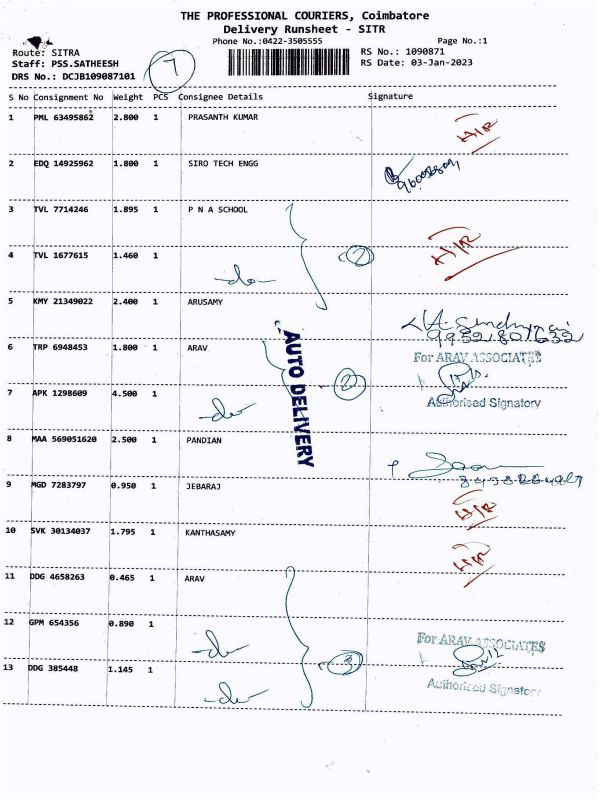 THE PROFESSIONAL COURIERS, Coimbatore
Delivery Runsheet - SITR
Phone No.:0422-3505555 Page No.:1
Route: SITRA RS No.: 1090871
Staff: PSS.SATHEESH RS Date: 03-Jan-2023
DRS No.: DCJB109087101
7
S No Consignment No Weight PCS Consignee Details Signature
1 PML 63495862 2.800 1 PRASANTH KUMAR
2 EDQ 14925962 1.800 1 SIRO TECH ENGG
3 TVL 7714246 1.895 1 P N A SCHOOL
4 TVL 1677615 1.460 1 -do- 2
5 KMY 21349022 2.400 1 ARUSAMY
6 TRP 6948453 1.800 1 ARAV For ARAV ASSOCIATES
7 APK 1298609 4.500 1 -do- 2 Authorised Signatory
AUTO DELIVERY
8 MAA 569051620 2.500 1 PANDIAN
9 MGD 7283797 0.950 1 JEBARAJ
10 SVK 30134037 1.795 1 KANTHASAMY
11 DDG 4658263 0.465 1 ARAV
12 GPM 654356 0.890 1 -do- For ARAV ASSOCIATES
13 DDG 385448 1.145 1 -do- 3 Authorised Signatory